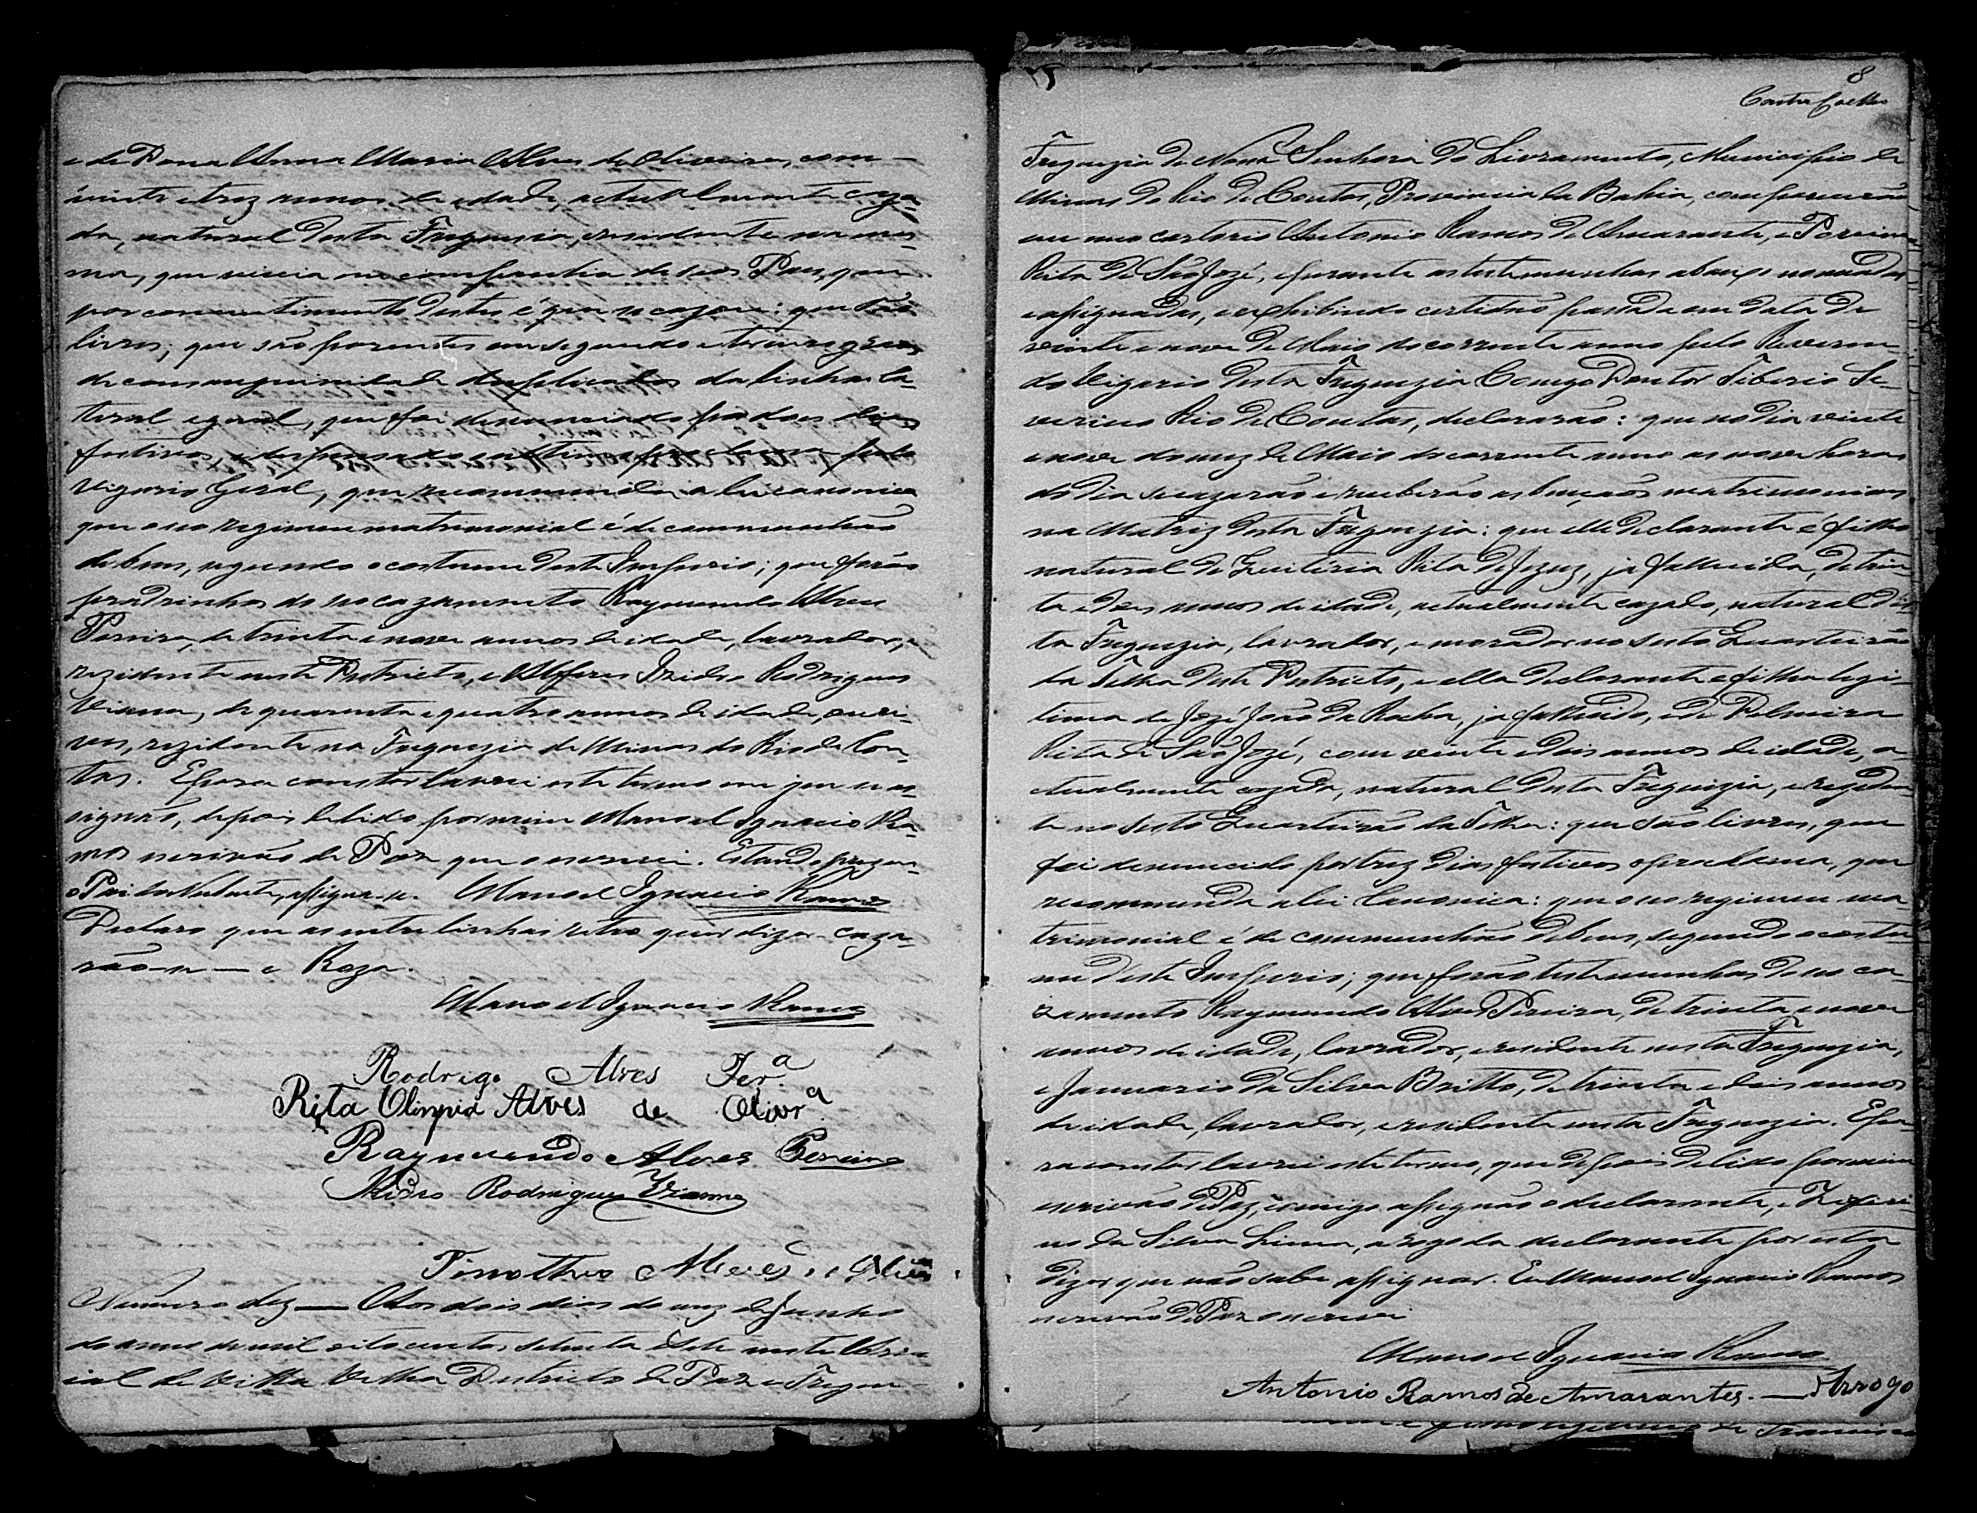 e de Dona Anna Maria Alves de Oliveira, com
vinte e trez annos de idade, actualmente caza-
da, natural desta Freguesia, residente na mes-
ma, que vivia na companhia de seos Paes, que
por consentimento destes é que se cazou: que são
livres; que são parentes em segundo e terceiro graos
de consanguinidade duplicados da linha la-
teral egual, que foi denunciado por dous dias
festivos, e dispensado proclama pelo
Vigario Geral, que recommenda a lei canonica
que o seo regimen matrimonial é de communhão
de bens, segundo o costume deste Imperio; que forão
padrinhos do seo cazamento Raymundo Alves
Pereira, de trinta e nove annos de idade, lavrador,
rezidente neste Destricto, e Alferes Izidro Rodrigues
Vianna, de quarenta e quatro annos de idade,
rezidente na Freguezia de Minas do Rio de Con-
tas. E para constar lavrei este termo em que se as-
signão, depois de lido por mim Manoel Ignacio Ra-
mos escrivão de Paz que o escrevi. Estando prezente
o Pai da Nubente, assigna-se. Manoel Ignacio Ramos
Declaro que as entre linhas retro quer dizer - caza-
rão-se — e Roza.
Manoel Ignacio Ramos
Rodrigo Alves Fer.ª
Rita Olimpia Alves de Olivr.ª
Raymundo Alves Pereira
Izidro Rodrigues Vianna
Timotheo Alves
Numero dez — Aos dois dias do mez de Junho
do anno de mil oito centos setenta e sete neste Arrai-
al de Villa Velha Destricto de Paz e Fregue-
8
Freguezia de Nossa Senhora do Livramento, Municipio de
Minas do Rio de Contas, Provincia da Bahia, comparecerão
em meo cartorio Antonio Ramos de Amarante, e
Rita de São Jozé, e perante as testemunhas abaixo nomeadas
e assignadas, e exhibindo certidão passada em data de
vinte e nove de Maio do corrente anno pelo Reveren-
do Vigario desta Freguezia Conego Doutor Tiberio Se-
verino Rio de Contas, declararão: que no dia vinte
e nove do mez de Maio do corrente anno as nove horas
do dia se cazarão e receberão as bençãos matrimoniaes
na Matriz desta Freguezia: que elle declarante é filho
natural de Quiteria Rita de Jezus, ja fallecida, de trin-
ta e dois annos de idade, actualmente cazado, natural des-
ta Freguezia, lavrador, e morador no sexto Quarteirão
da Telha deste Destricto, e ella declarante é filha legi-
tima de Jozé João da Rocha, ja fallecido, e de
Rita de São Jozé, com vinte e dois annos de idade, a-
ctualmente cazada, natural desta Freguezia, e reziden-
te no sexto Quarteirão da Telha: que são livres, que
foi denunciado por trez dias festivos o proclama, que
recommenda a lei Canonica: que o seo regimen ma-
trimonial é de communhão de bens, segundo o costu-
me deste Imperio; que forão testemunhas do seo ca-
zamento Raymundo Alves Pereira, de trinta e nove
annos de idade, lavrador, e residente nesta Freguezia,
e Januario da Silva Britto, de trinta e dois annos
de idade, lavrador, e residente nesta Freguezia. E pa-
ra constar lavrei este termo, que depois de lido por mim
escrivão de Paz, comigo assignão o declarante, e Zeferi-
no da Silva Lima, a rogo da declarante por esta
dizer que não sabe assignar. Eu Manoel Ignacio Ramos
escrivão de Paz o escrevi
Manoel Ignacio Ramos
Antonio Ramos de Amarantes. — Arrogo
de Francisco